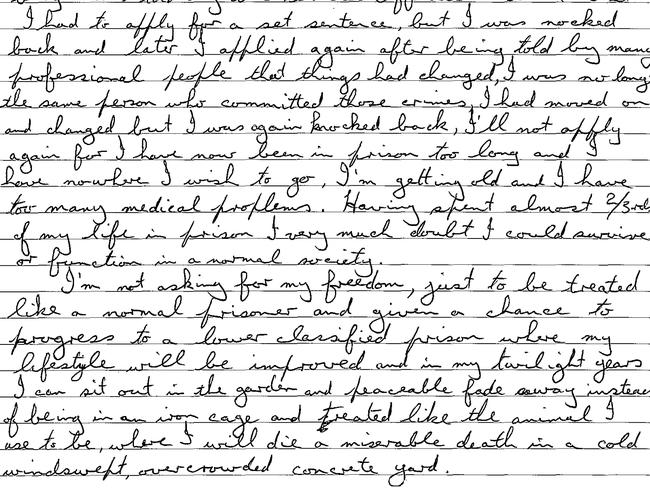 I had to apply for a set sentence, but I was nocked
back and later I applied again after being told by many
professional people that things had changed, I was no long
the same person who committed those crimes, I had moved on
and changed but I was again knocked back, I'll not apply
again for I have now been in prison too long and I
have nowhere I wish to go, I'm getting old and I have
too many medical proplems. Having spent almost 2/3rds
of my life in prison I very much doubt I could survive
or function in a normal society.
I'm not asking for my freedom, just to be treated
like a normal prisoner and given a chance to
progress to a lower classified prison where my
lifestyle will be improved and in my twilight years
I can sit out in the garden and peaceable fade away instead
of being in an iron cage and treated like the animal I
use to be, where I will die a miserable death in a cold
windswept, overcrowded concrete yard.